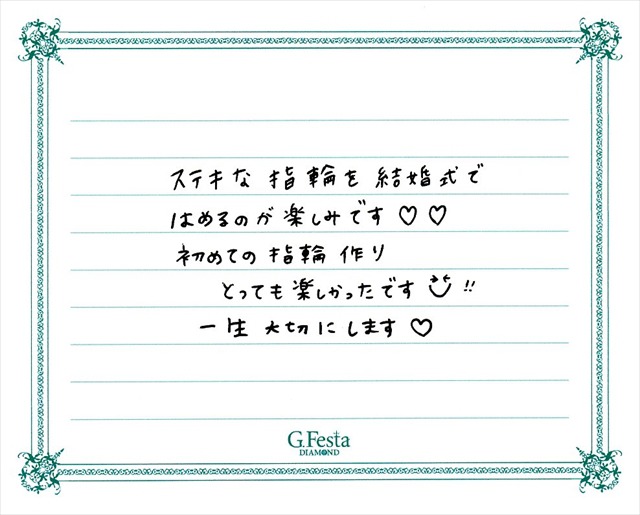 ステキな指輪を結婚式で
はめるのが楽しみです♡♡
初めての指輪作り
とっても楽しかったです!!
一生大切にします♡
G.Festa
DIAMOND